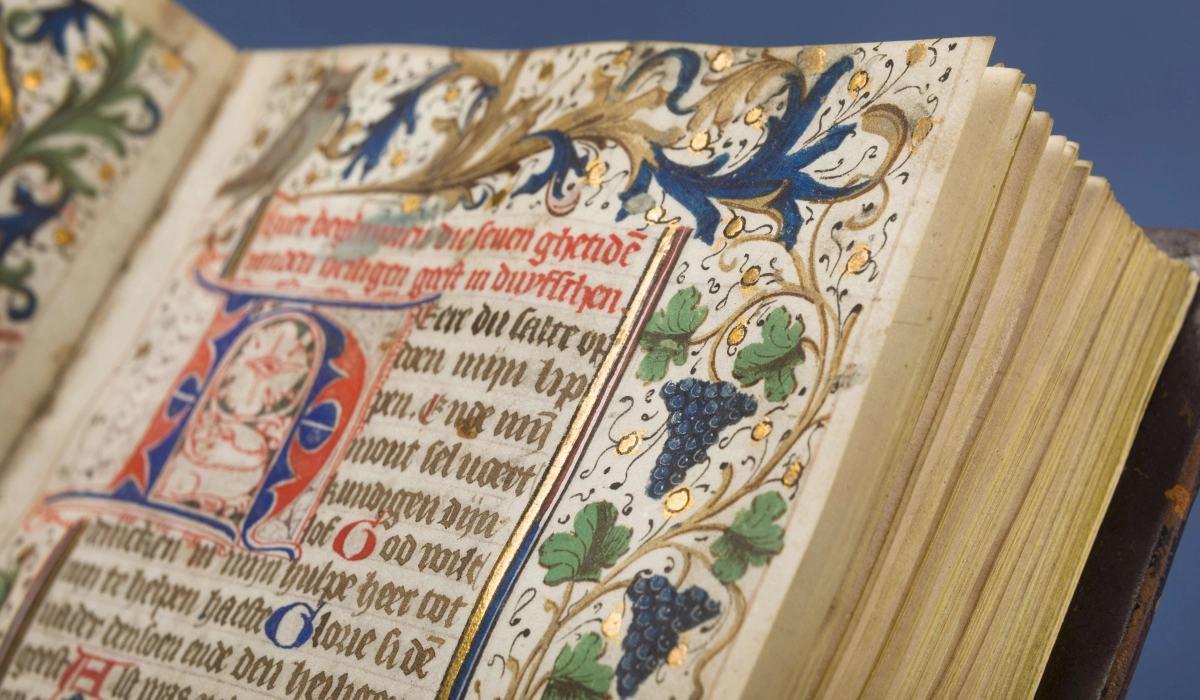 Hier beghinnen die seuen ghetidē
vanden heiligen geest in duytschen.
HEere du salte op
doen mijn lip
pen. Ende mijn̄
mont sel uoert
kundigen dijn
lof God wilt
in mijn hulpe heer tot
te helpen haeste Glorie si dē
uader den soen ende den heiligen
geest Als